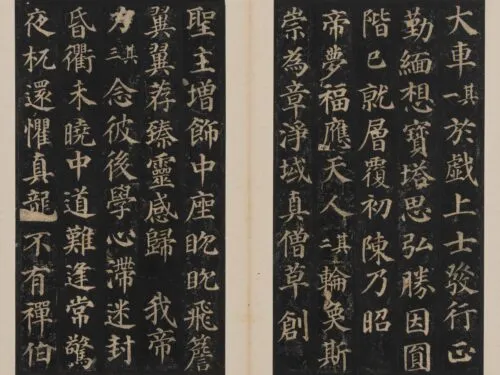 大車其一於戲上士發行正
勤緬想寶塔思弘勝因圓
階已就層覆初陳乃昭
帝夢福應天人其二輪奐斯
崇為章淨域真僧草創
聖主增飾中座眈眈飛簷
翼翼荐臻靈感歸 我帝
力其三念彼後學心滯迷封
昏衢未曉中道難逢常驚
夜杌還懼真龍不有禪伯